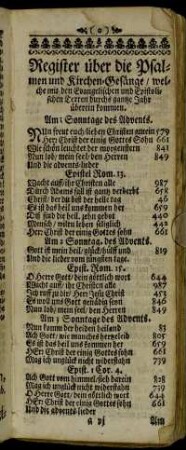 ( o )
Register über die Psal-
men und Kirchen-Gesänge / wel-
che mit den Evangelischen und Epistoli-
schen Texten durchs gantze Jahr
überein kommen.
Am 1 Sonntage des Advents.
Nun freut euch lieben Christen gmein 579
Herr Christ der einig Gottes Sohn 661
Wie schön leuchtet der morgenstern 843
Nun lob / mein seel / den Herren 849
Und die advents-lieder
Epistel Rom. 13.
Wacht auff ihr Christen alle 987
Durch Adams fall ist gantz verderbt 655
Christ / der du bist der helle tag 46
Es ist das heil uns kommen her 659
Diß sind die heil. zehn gebot 440
Mensch / wilt du leben seliglich 442
Herr Christ der einig Gottes Sohn 661
Am 2 Sonntag. des Advents.
Gott ist mein heil / glück / hülff und 819
Und die lieder vom jüngsten tage.
Epist. Rom. 15.
O Herre Gott / dein göttlich wort 644
Wacht auff ihr Christen alle 987
Ich ruff zu dir / Herr Jesu Christ 453
Es woll uns Gott genädig seyn 846
Nun lob / mein seel / den Herren 849
Am 3 Sonntage des Advents.
Nun komm der heiden heiland 83
Ach Gott / wie manches hertzeleid 805
Es ist das heil uns kommen her 659
HErr Christ der einig Gottes sohn 661
Mag ich unglück nicht widerstahn 739
Epist. 1 Cor. 4.
Ach Gott vom himmel / sieh darein 828
Mag ich unglück nicht widerstahn 739
O Herre Gott / dein göttlich wort 644
HErr Christ der einig Gottes sohn 661
Und die advents lieder
Am